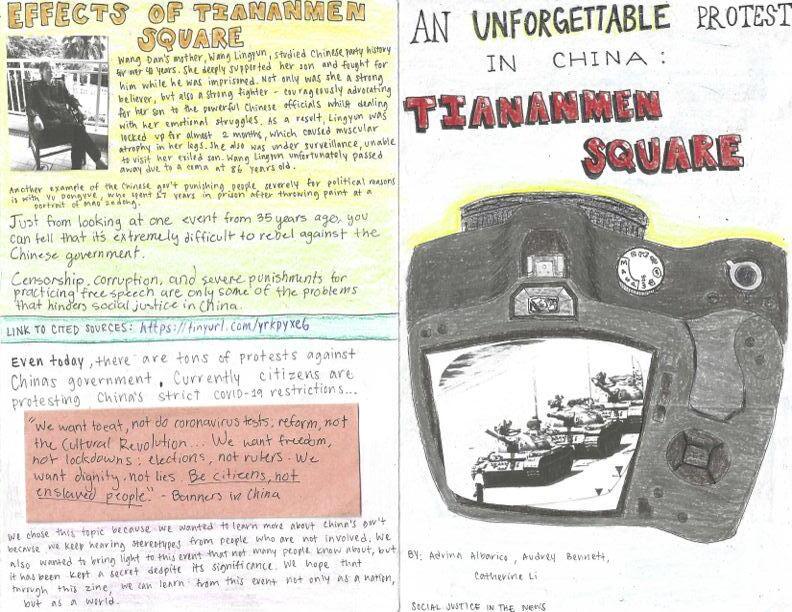 EFFECTS OF TIANANMEN
SQUARE
Wang Dan's mother, Wang Lingyun, studied Chinese party history
for over 40 years. She deeply supported her son and fought for
him while he was imprisoned. Not only was she a strong
believer, but also a strong fighter - courageously advocating
for her son to the powerful Chinese officials whilst dealing
with her emotional struggles. As a result, Lingyun was
locked up for almost 2 months, which caused muscular
atrophy in her legs. She also was under surveillance, unable
to visit her exiled son. Wang Lingyun unfortunately passed
away due to a coma at 86 years old.
Another example of the Chinese gov't punishing people severely for political reasons
is with Yu Dongyue, who spent 17 years in prison after throwing paint at a
portrait of Mao Zedong.
Just from looking at one event from 35 years ago, you
can tell that its extremely difficult to rebel against the
Chinese government.
Censorship, corruption, and severe punishments for
practicing free speech are only some of the problems
that hinders social justice in China.
LINK TO CITED SOURCES: https://tinyurl.com/yrkpyxe6
Even today, there are tons of protests against
Chinas government. Currently citizens are
protesting China's strict COVID-19 restrictions...
"We want to eat, not do coronavirus tests; reform, not
the Cultural Revolution... We want freedom,
not lockdowns; elections, not rulers. We
want dignity, not lies. Be citizens, not
enslaved people". - Banners in China
We chose this topic because we wanted to learn more about China's gov't
because we keep hearing stereotypes from people who are not involved. We
also wanted to bring light to this event that not many people know about, but
it has been kept a secret despite its significance. We hope that
through this zine, we can learn from this event not only as a nation,
but as a world.
AN UNFORGETTABLE PROTEST
IN CHINA:
TIANANMEN
SQUARE
BY: Adrina Albarico, Audrey Bennett,
Catherine Li
SOCIAL JUSTICE IN THE NEWS